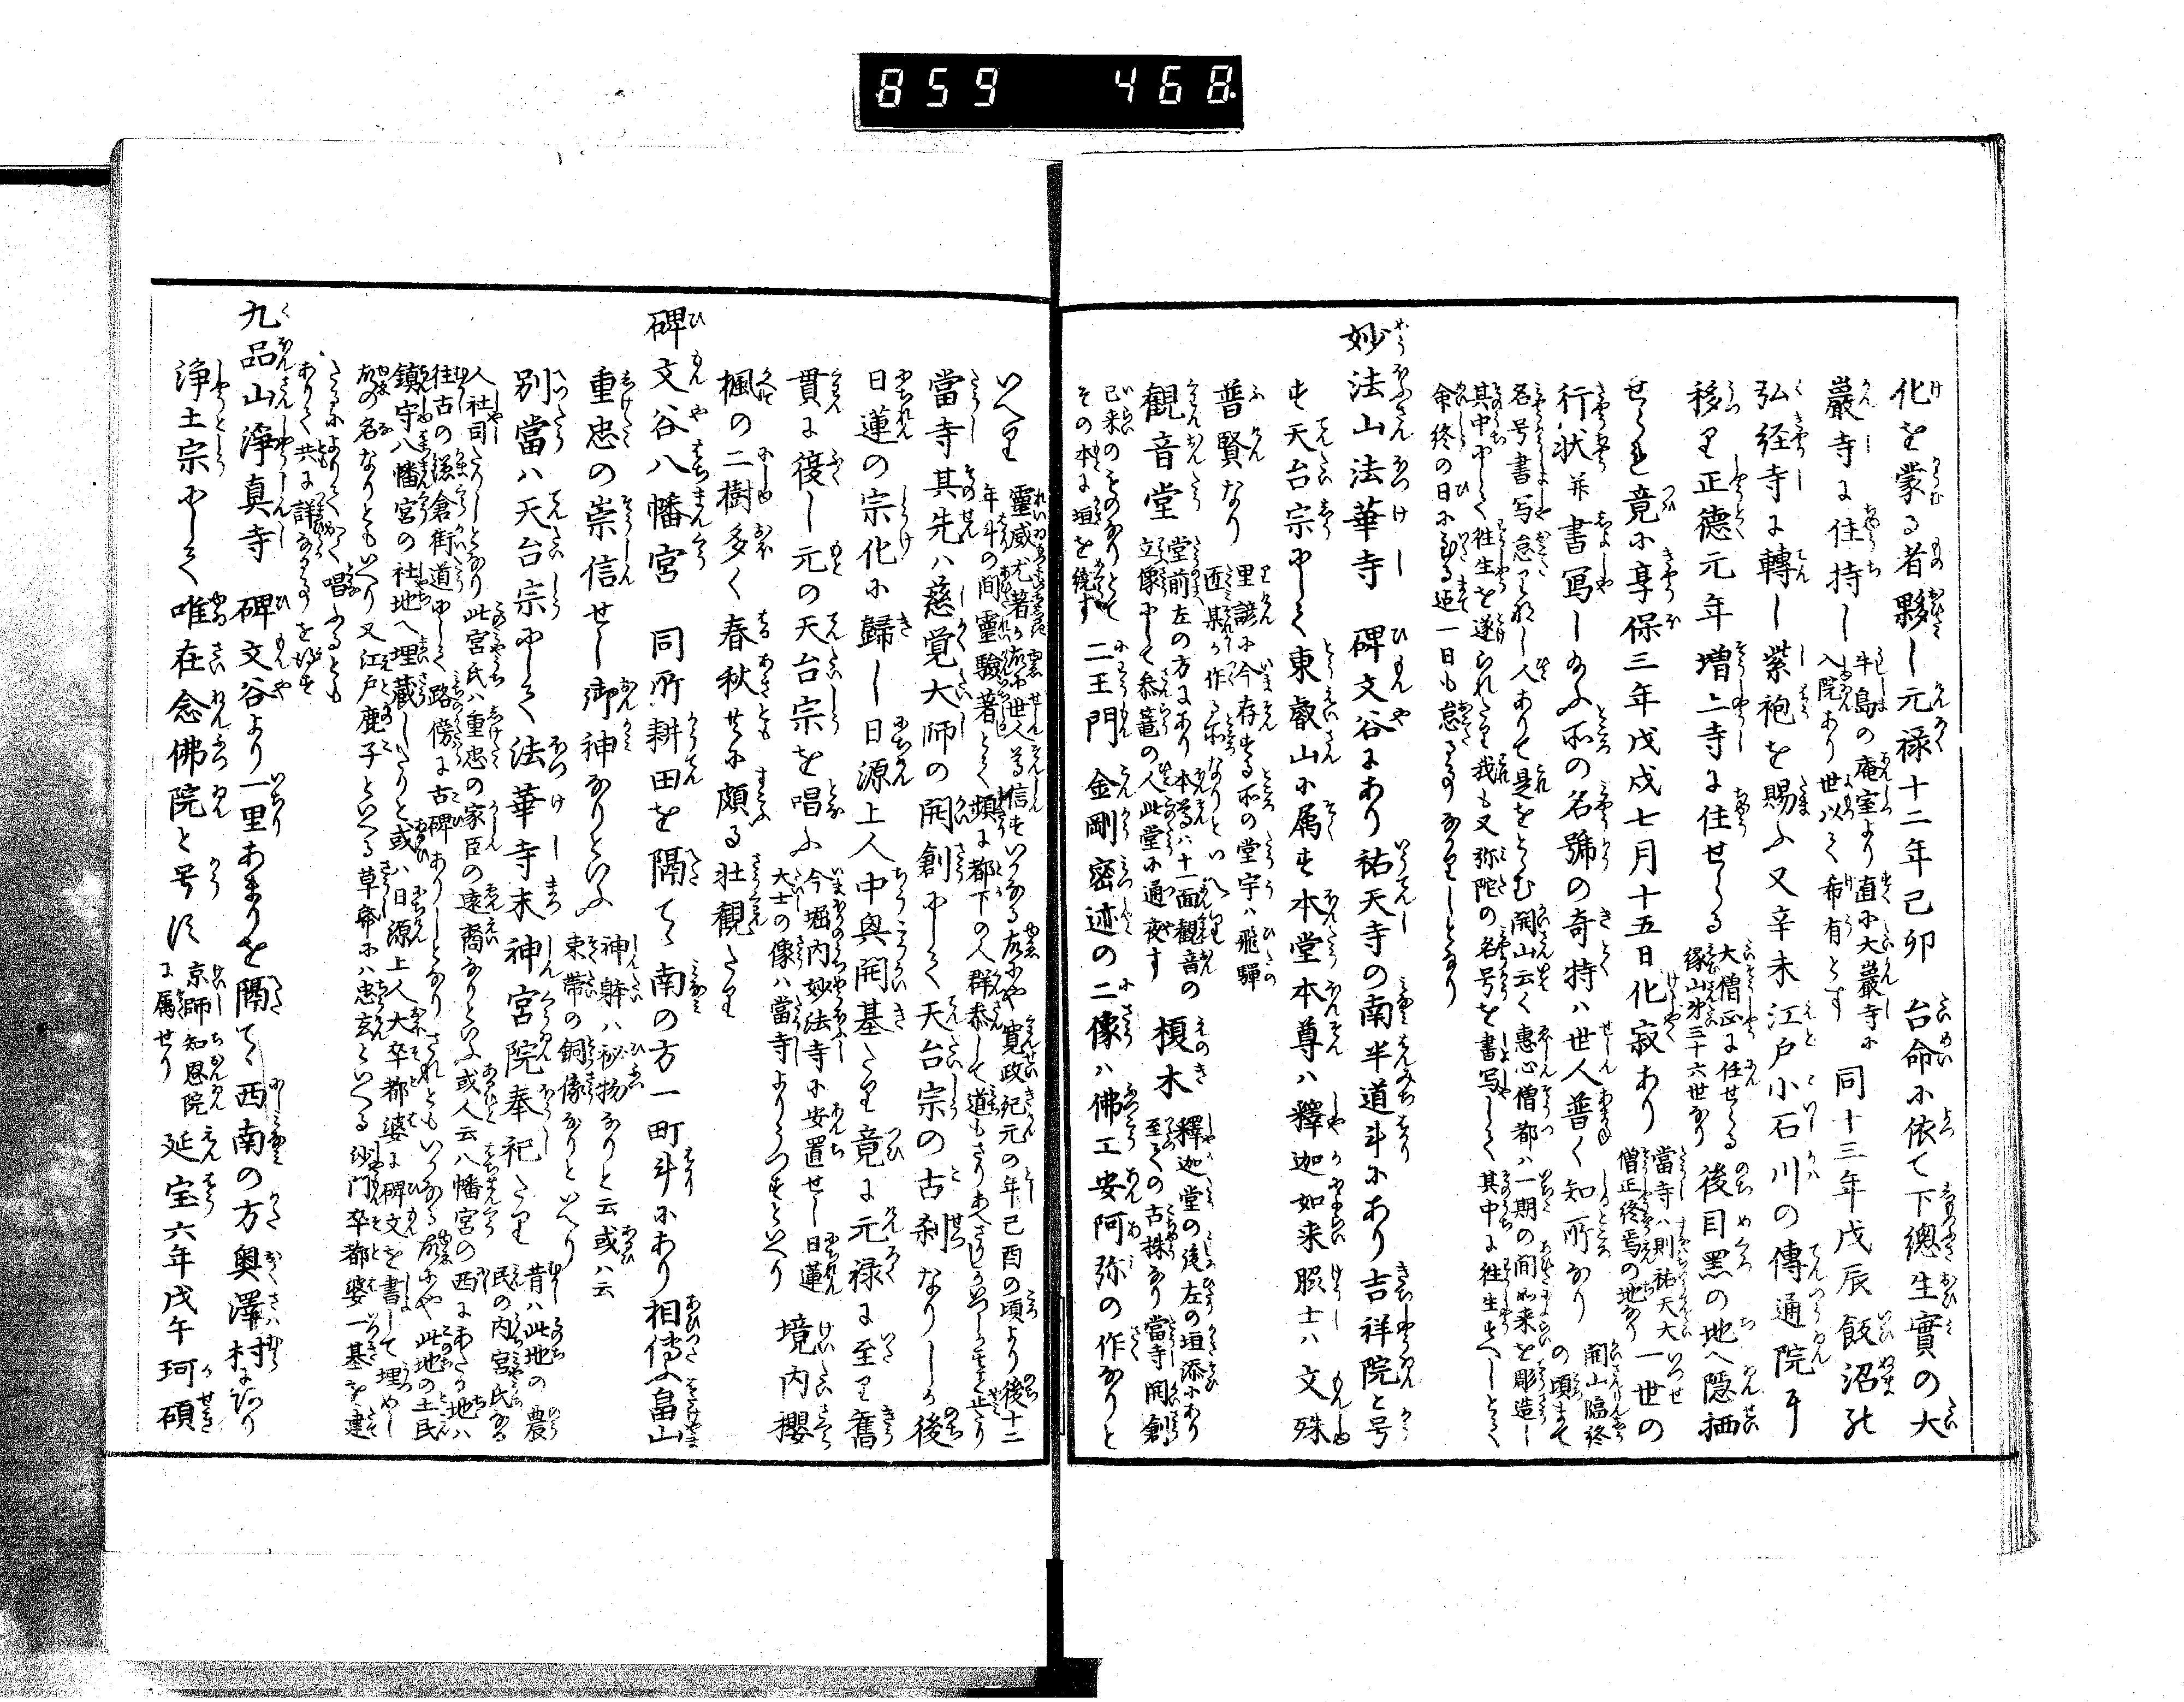 859 468
化を蒙る者夥し元禄十二年己卯 台命に依て下總生實の大
巖寺に住持し 牛島の庵室より直に大巖寺に
入院あり世以て希有とす 同十三年戊辰飯沼の
弘経寺に轉し紫袍を賜ふ又辛未江戸小石川の傳通院に
移り正徳元年増上寺に住せらる 大僧正に任せらる
縁山第三十六世なり 後目黒の地へ隠栖
せられ竟に享保三年戊戌七月十五日化寂あり 當寺ハ則祐天大
僧正終焉の地なり 一世の
行状并書写し給ふ所の名號の奇特ハ世人普く知所なり 開山臨終
の頃まて
名号書写怠りなし人ありて是をとむ開山云く恵心僧都ハ一期の間如来を彫造し
其中にして往生を遂られたり我も又弥陀の名号を書写して其中に往生すへしとて
命終の日に至る迄一日も怠るる事なかりしとなり
妙法山法華寺 碑文谷にあり祐天寺の南半道斗にあり吉祥院と号
す天台宗にして東叡山に属す本堂本尊ハ釋迦如来脇士ハ文殊
普賢なり 里諺に今存する所の堂宇ハ飛騨
匠某か作る所なりといへり
觀音堂 堂前左の方にあり本尊ハ十一面觀音の
立像にして参篭の人此堂に通夜す 榎木 釋迦堂の後左の垣添にあり
至ての古株なり當寺開創
已来のものなりとて
その本に垣を繞す 二王門 金剛密迹の二像ハ佛工安阿弥の作なりと
いへり 靈威尤著き故に世人尊信すいかなる故にや寛政紀元の年己酉の頃より後十二
年斗の間靈驗著とて頻に都下の人群参して道もさりあへさりしか
當寺其先ハ慈覚大師の開創にして天台宗の古刹なりしか後
日蓮の宗化に歸し日源上人中興開基たり竟に元禄に至り舊
貫に復し元の天台宗を唱ふ 今堀内妙法寺に安置せし日蓮
大士の像ハ當寺よりうつすといへり 境内櫻
楓の二樹多く春秋共に頗る壮観たり
碑文谷八幡宮 同所耕田を隔て南の方一町斗にあり相傳ふ畠山
重忠の崇信せし御神なりといふ 神躰ハ秘物なりと云或ハ云
束帯の銅像なりといへり
別當ハ天台宗にして法華寺末神宮院奉祀たり 昔ハ此地の農
民の内宮氏なる
人社司たりしとなり此宮氏ハ重忠の家臣の遠裔なりといふ或人云八幡宮の西にあたる地ハ
往古の鎌倉街道にして路傍に古碑ありしとなりされともいかなる故にや此地の土民
鎮守八幡宮の社地へ埋蔵したりと或ハ日源上人大卒都婆に碑文を書して埋めし
故の名なりともいへり又江戸鹿子といへる草帋にハ忠玄といへる沙門卒都婆一基を建
たるによりてかく唱ふるとも
ありて共に詳なる事を得す
九品山浄真寺 碑文谷より一里あまりを隔て西南の方奥澤村にあり
浄土宗にして唯在念佛院と号す 京師知恩院
に属せり 延宝六年戊午珂碩